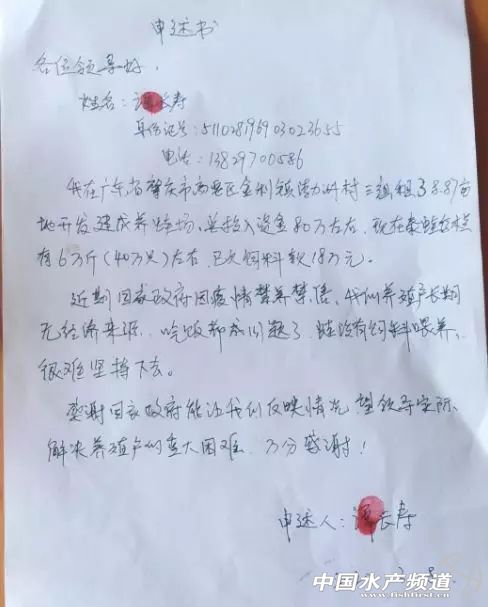 申述书
各位领导好，
姓名：长寿
身份证号：511028196903023655
电话：13829700586
我在广东省肇庆市高要区金利镇村三组租38.87亩
地开发建成养蛙场，总投入资金80万左右，现在泰蛙存栏
有6万斤（40万只）左右，已欠饲料款18万元。
近期国家政府因疫情禁养禁售，我们养殖户长期
无经济来源，吃饭都成问题了，蛙没有饲料喂养，
很难坚持下去。
感谢国家政府能让我们反映情况，望领导实际
解决养殖户们重大困难，万分感谢！
申述人：长寿
中国水产频道
www.fishfirst.cn